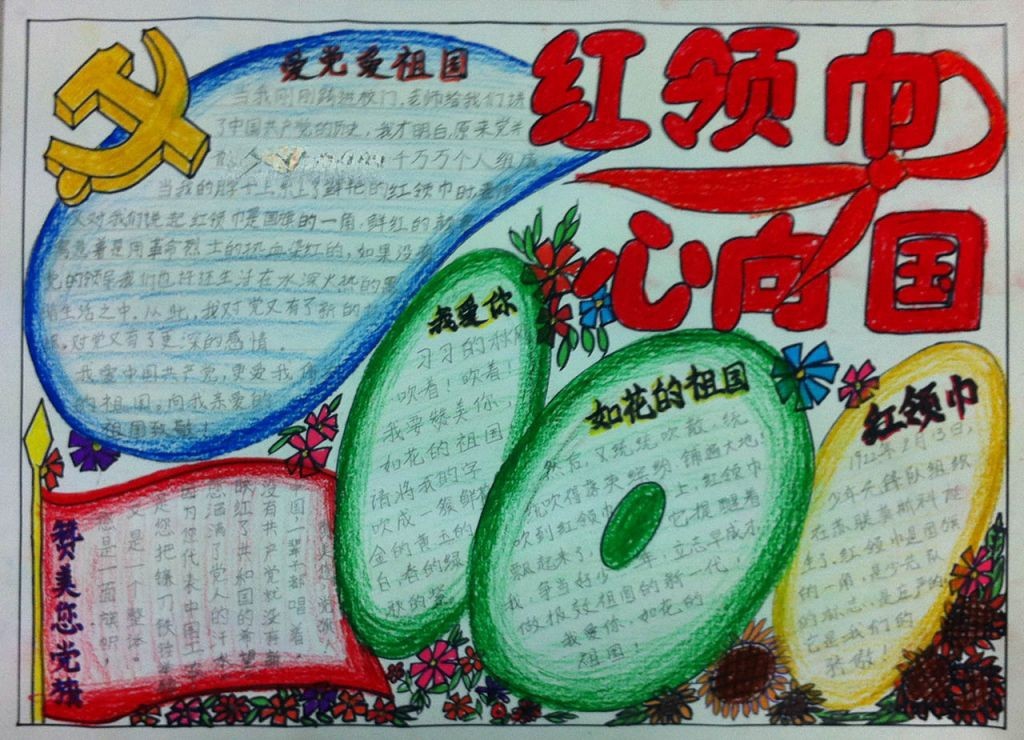 红领巾
心向国
爱党爱祖国
当我刚刚踏进校门,老师给我们讲
了中国共产党的历史,我才明白,原来党并
千万万个人组成
当我的脖子上系上了鲜艳的红领巾时
又对我们说起红领巾是国旗的一角,鲜红的颜
意着是用革命烈士的热血染红的,如果没有
党的领导我们也许还生活在水深火热的黑
暗生活之中,从此,我对党又有了新的
,对党又有了更深的感情。
我爱中国共产党,更爱我
的祖国。向我亲爱的
祖国致敬!
我爱你
习习的秋风
吹着!吹着!
我要赞美你,
如花的祖国
请将我的字
吹成一 鲜
金的黄玉的
白,春的绿
秋的
如花的祖国
然后,又统统吹散,统
统吹得落英缤纷铺遍大地!
吹到红领巾上,红领巾
飘起来了,它提醒着
我,争当好少年,立志早成才
做报效祖国的新一代!
我爱你,如花的
祖国!
红领巾
1922年2月13日,
少年先锋队组织
在苏联莫斯科诞
生了.红领巾是国旗
的一角,是少先队
的标志,是庄严的
它是我们的
骄傲!
赞美您党旗
国,一辈子都唱着
没有共产党就没有新
映红了共和国的希望
您洒满了党人的汗水
因为您代表中国工农
是您把镰刀铁锤
又是一个整体。
您是一面旗帜,